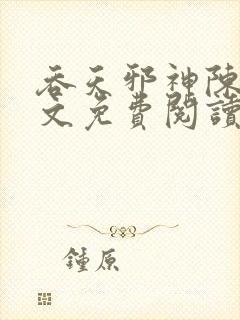 吞天邪神陳
文免費閱讀
鍾原